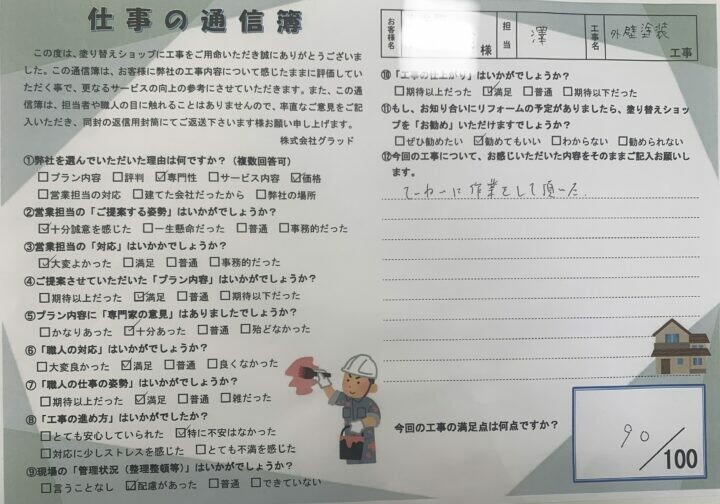 仕事の通信簿
この度は、塗り替えショップに工事をご用命いただき誠にありがとうございま
した。この通信簿は、お客様に弊社の工事内容について感じたままに評価してい
ただく事で、更なるサービスの向上の参考にさせていただきます。また、この通
信簿は、担当者や職人の目に触れることはありませんので、率直なご意見をご記
入いただき、同封の返信用封筒にてご返送下さいます様お願い申し上げます。
株式会社グラッド
①弊社を選んでいただいた理由は何ですか？（複数回答可）
□プラン内容 □評判 ☑専門性 □サービス内容 ☑価格
□営業担当の対応 □建てた会社だったから □弊社の場所
②営業担当の「ご提案する姿勢」はいかがでしょうか？
☑十分誠意を感じた □一生懸命だった □普通 □事務的だった
③営業担当の「対応」はいかかでしょうか？
☑大変よかった □満足 □普通 □事務的だった
④ご提案させていただいた「プラン内容」はいかがでしょうか？
□期待以上だった ☑満足 □普通 □期待以下だった
⑤プラン内容に「専門家の意見」はありましたでしょうか？
□かなりあった ☑十分あった □普通 □殆どなかった
⑥「職人の対応」はいかがでしょうか？
□大変良かった ☑満足 □普通 □良くなかった
⑦「職人の仕事の姿勢」はいかがでしょうか？
□期待以上だった ☑満足 □普通 □雑だった
⑧「工事の進め方」はいかがでしたか？
□とても安心していられた ☑特に不安はなかった
□対応に少しストレスを感じた □とても不満を感じた
⑨現場の「管理状況（整理整頓等）」はいかがでしょうか？
□言うことなし ☑配慮があった □普通 □できていない
お客様名 様 担当 澤 工事名 外壁塗装 工事
⑩「工事の仕上がり」はいかがでしょうか？
□期待以上だった ☑満足 □普通 □期待以下だった
⑪もし、お知り合いにリフォームの予定がありましたら、塗り替えショッ
プを「お勧め」いただけますでしょうか？
□ぜひ勧めたい ☑勧めてもいい □わからない □勧められない
⑫今回の工事について、お感じいただいた内容をそのままご記入お願いし
ます。
てーねーに作業をして頂いた.
今回の工事の満足点は何点ですか？
90/100